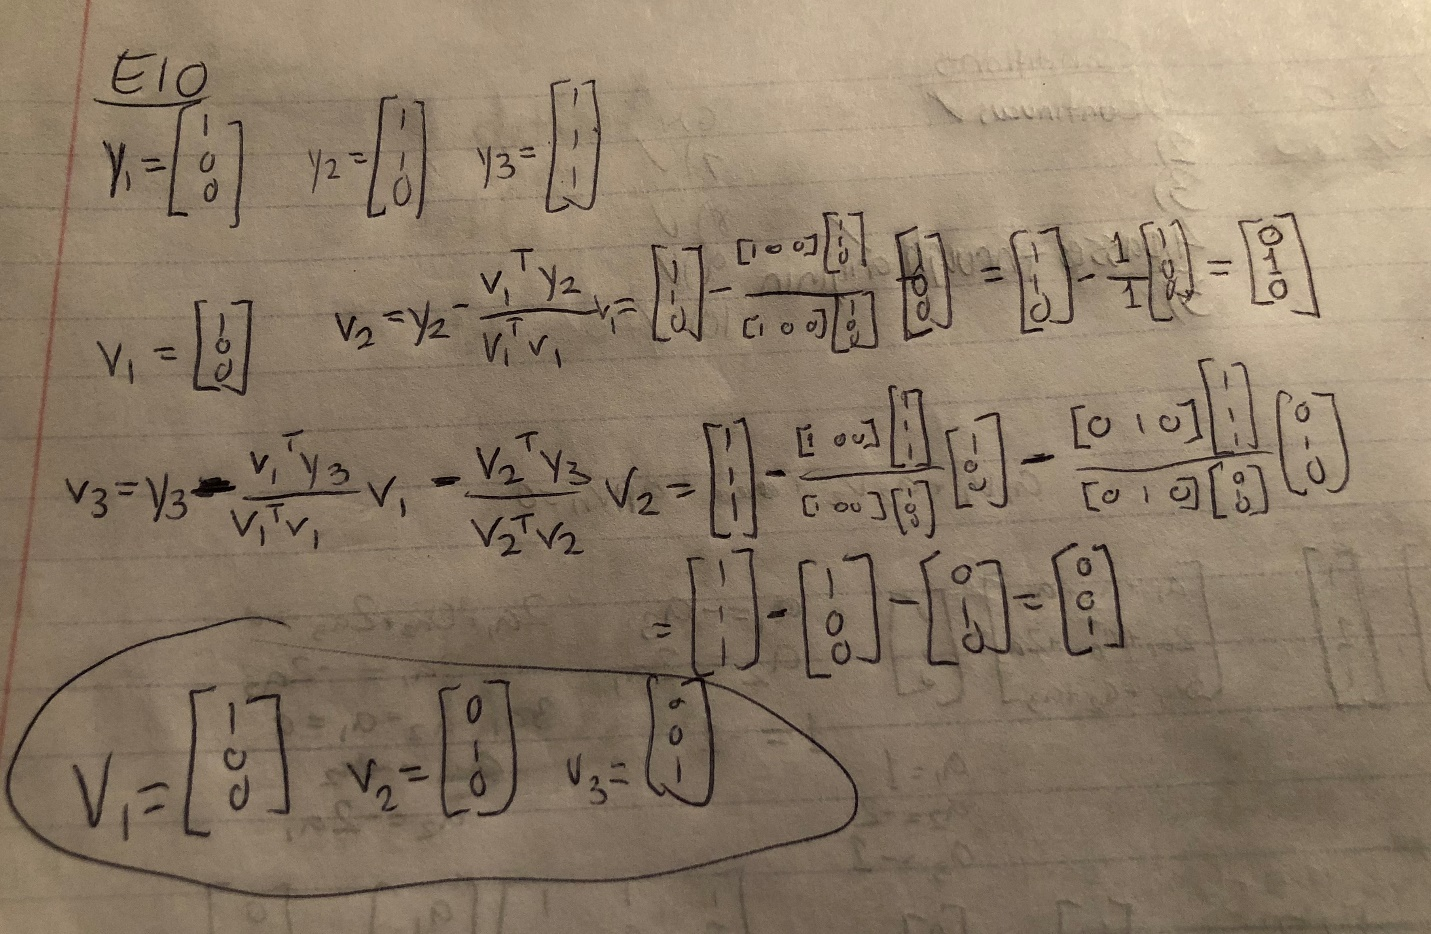 E10
y₁ = [1 0 0] y₂ = [1 1 0] y₃ = [1 1 1]
v₁ = [1 0 0] v₂ = y₂ - v₁ᵀy₂ / v₁ᵀv₁ v₁ = [1 1 0] - [1 0 0][1 1 0] / [1 0 0][1 0 0] [1 0 0] = [1 1 0] - 1/1 [1 0 0] = [0 1 0]
v₃ = y₃ - v₁ᵀy₃ / v₁ᵀv₁ v₁ - v₂ᵀy₃ / v₂ᵀv₂ v₂ = [1 1 1] - [1 0 0][1 1 1] / [1 0 0][1 0 0] [1 0 0] - [0 1 0][1 1 1] / [0 1 0][0 1 0] [0 1 0]
= [1 1 1] - [1 0 0] - [0 1 0] = [0 0 1]
v₁ = [1 0 0] v₂ = [0 1 0] v₃ = [0 0 1]